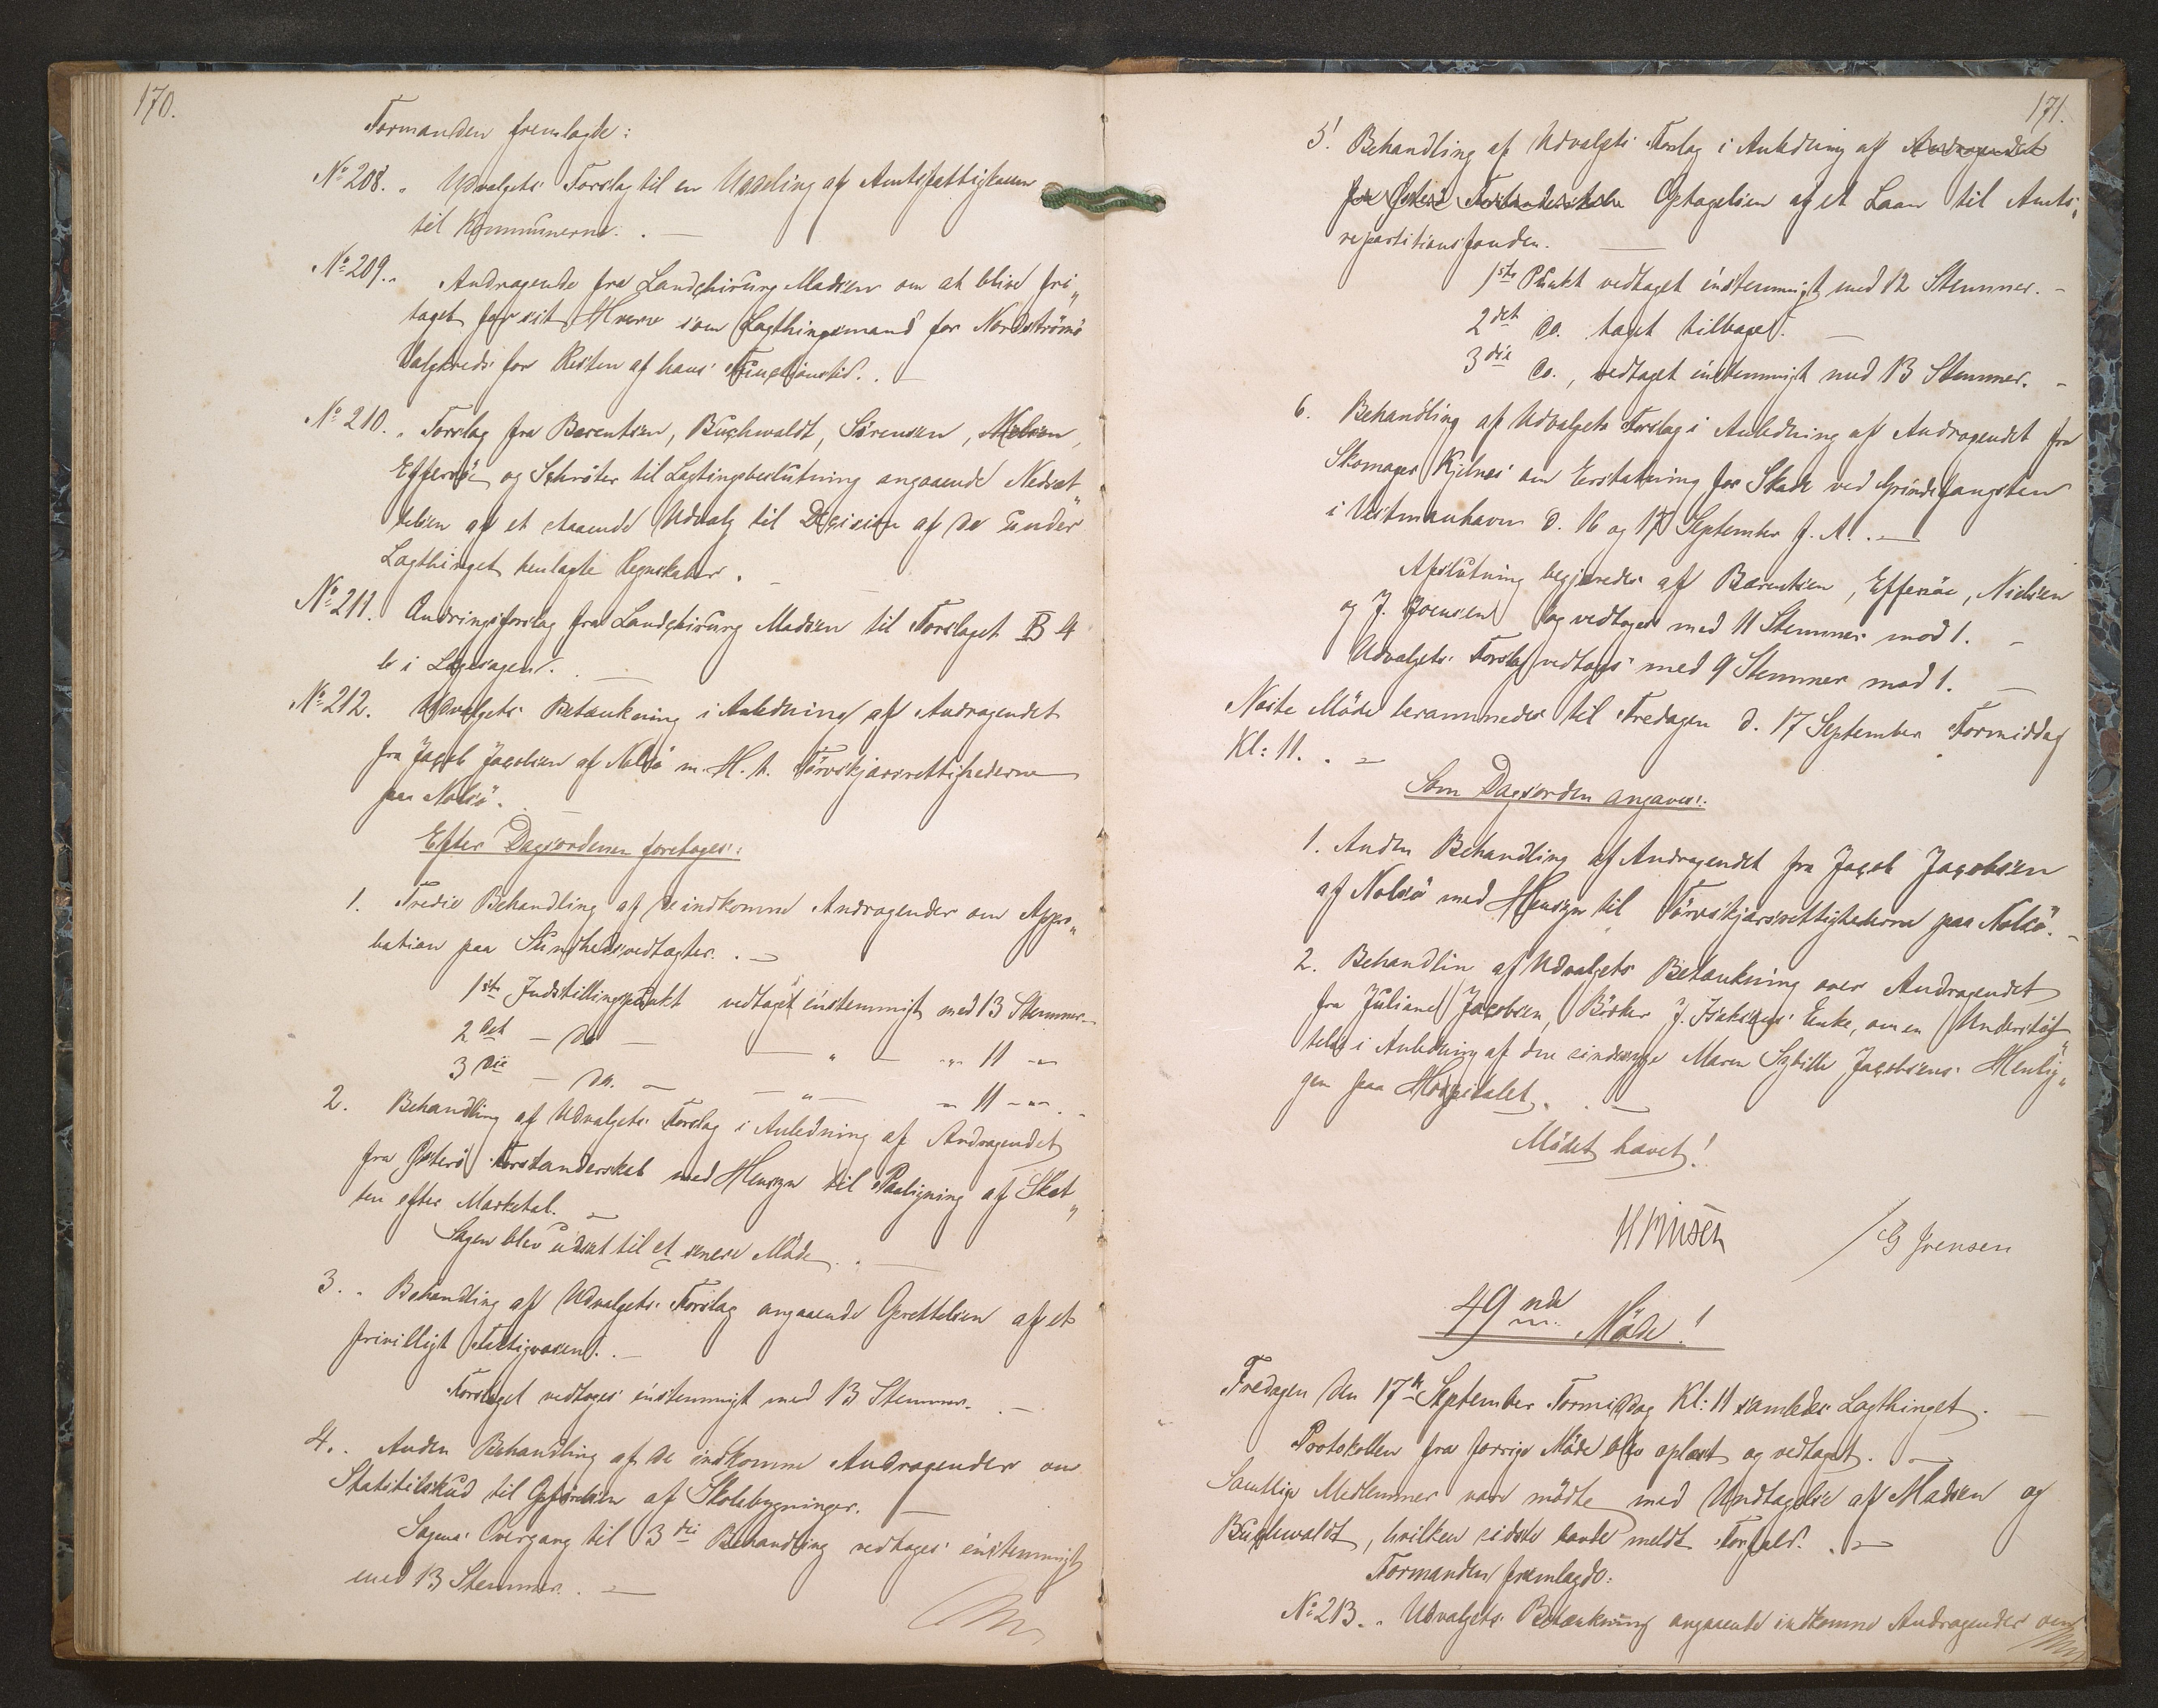 170.
Formanden fremlagde:
No 208. Udvalgets Forslag til en Uddeling af Amtsfattigkassen
til Kommunerne. —
No 209. Andragende fra Landchirurg Madsen om at blive fri„
taget for sit Hverv som Lagthingsmand for Nordströmö
Valgkreds for Resten af hans Functionstid. —
No 210. Forslag fra Berentsen, Buchwaldt, Sörensen, Nielsen,
Effersöe og Schröter til Lagtingsbeslutning angaaende Nedsæt„
telsen af et staaende Udvalg til Decision af de under
Lagthinget henlagte Regnskaber. —
No 211. Ændringsforslag fra Landchirurg Madsen til Forslaget B 4
b i Lægesagen. —
No 212. Udvalgets Betænkning i Anledning af Andragendet
fra Jacob Jacobsen af Nolsö m. H. t. Törvskjærsrettighederne
paa Nolsö. —
Efter Dagsordenen foretoges:
1. Tredie Behandling af de indkomne Andragender om Appro„
bation paa Sundhedsvedtægter. —
1ste Indstillingspunkt vedtaget eenstemmigt med 13 Stemmer. —
2det — do — — " — -"- 11 -"-
3die — do. — — " — - 11 -"-. -
2. Behandling af Udvalgets Forslag i Anledning af Andragendet
fra Österö Forstanderskab med Hensyn til Paaligning af Skat„
ten efter Marketal. —
Sagen blev udsat til et senere Möde. —
3. Behandling af Udvalgets Forslag angaaende Oprettelsen af et
frivilligt Fattigvæsen. —
Forslaget vedtoges eenstemmigt med 13 Stemmer. —
4. Anden Behandling af de indkomne Andragender om
Statstilskud til Opförelsen af Skolebygninger. —
Sagens Overgang til 3die Behandling vedtoges eenstemmigt
med 13 Stemmer. —
171.
5. Behandling af Udvalgets Forslag i Anledning af Andragendet
fra Österö Forstanderskab Optagelsen af et Laan til Amts„
repartitionsfonden. —
1ste Punkt vedtaget eenstemmigt med 12 Stemmer. -
2det do. taget tilbage. —
3die do., vedtaget eenstemmigt med 13 Stemmer. -
6. Behandling af Udvalgets Forslag i Anledning af Andragendet fra
Skomager Kjelnes om Erstatning for Skade ved Grindefangsten
i Vestmanhavn d. 16 og 17 September f. A. —
Afslutning begjæredes af Bærentsen, Effersöe, Nielsen
og J. Joensen og vedtoges med 11 Stemmer mod 1. -
Udvalgets Forslag vedtoges med 9 Stemmer mod 1. —
Næste Möde berammedes til Fredagen d. 17 September Formiddag
Kl: 11. —
Som Dagsorden angaves:
1. Anden Behandling af Andragendet fra Jacob Jacobsen
af Nolsö med Hensyn til Törvskjærsrettighederne paa Nolsö. -
2. Behandlin af Udvalgets Betænkning over Andragendet
fra Juliane Jacobsen, Bödker J. Isaksens Enke, om en Understöt„
telse i Anledning af den sindssyge Maren Sybille Jacobsens Henlig„
gen paa Hospitalet. —
Mödet hævet!
H Finsen
/ G Joensen
49nde Möde!
Fredagen den 17de September Formiddag Kl: 11 samledes Lagthinget. —
Protokollen fra forrige Möde blev oplæst og vedtaget. —
Samtlige Medlemmer vare mödte med Undtagelse af Madsen og
Buchwaldt, hvilken sidste havde meldt Forfald. —
Formanden fremlagde:
No 213. Udvalgets Betænkning angaaende indkomne Andragender om